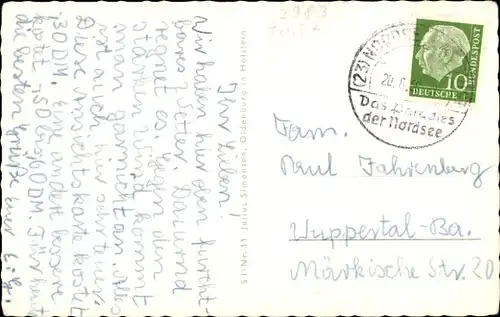 2983
Ihr Lieben!
Wir haben hier oben furcht-
bares Wetter. Dauernd
regnet es. Gegen den
starken Wind kommt
man gar nicht an. Alles
ist auch hier sehr teuer.
Diese Ansichtskarte kostet
30 DM, eine andere bessere
kostet -,50 bis 60 DM. Für heute
die besten Grüße Eure
St-Nr. 11 Julius Simonsen, Oldenburg in Holstein
(23) NORDDEICH
Das Paradies
der Nordsee
DEUTSCHE BUNDESPOST
10
Fam.
Paul Fahrenberg
Wuppertal-Ba.
Märkische Str. 20